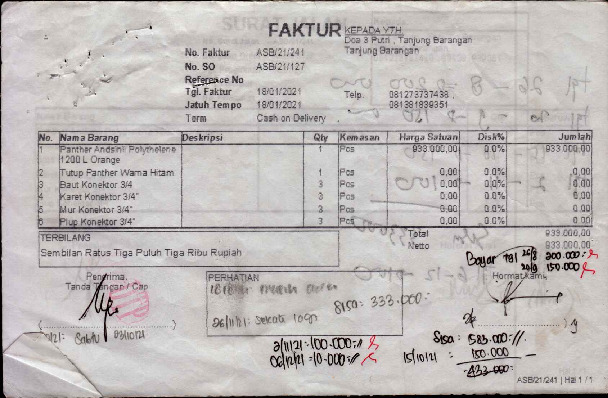 FAKTUR
KEPADA YTH
Doa 3 Putri , Tanjung Barangan
Tanjung Barangan
No. Faktur ASB/21/241
No. SO ASB/21/127
Reference No
Tgl. Faktur 18/01/2021 Telp. 081273737438,
Jatuh Tempo 18/01/2021 081381839351
Term Cash on Delivery
No. Nama Barang Deskripsi Qty Kemasan Harga Satuan Disk% Jumlah
1 Panther Andsinil Polythelene 1 Pcs 933.000,00 0.0% 933.000,00
1200 L Orange
2 Tutup Panther Warna Hitam 1 Pcs 0,00 0.0% 0,00
3 Baut Konektor 3/4 3 Pcs 0,00 0.0% 0,00
4 Karet Konektor 3/4" 3 Pcs 0,00 0.0% 0,00
5 Mur Konektor 3/4" 3 Pcs 0,00 0.0% 0,00
6 Plup Konektor 3/4" 3 Pcs 0,00 0.0% 0,00
TERBILANG
Total 933.000,00
Netto 933.000,00
Sembilan Ratus Tiga Puluh Tiga Ribu Rupiah
Bayar tgl 26/8 200.000:
150.000:
Penerima,
Tanda Tangan / Cap
PERHATIAN
Hormat kami,
Sisa: 333.000:
26/11/21:
2/11/21 = 100.000:
06/12/21 = 10.000:
Sisa: 583.000:
15/10/21: 150.000
433.000:
ASB/21/241 | Hal 1 / 1